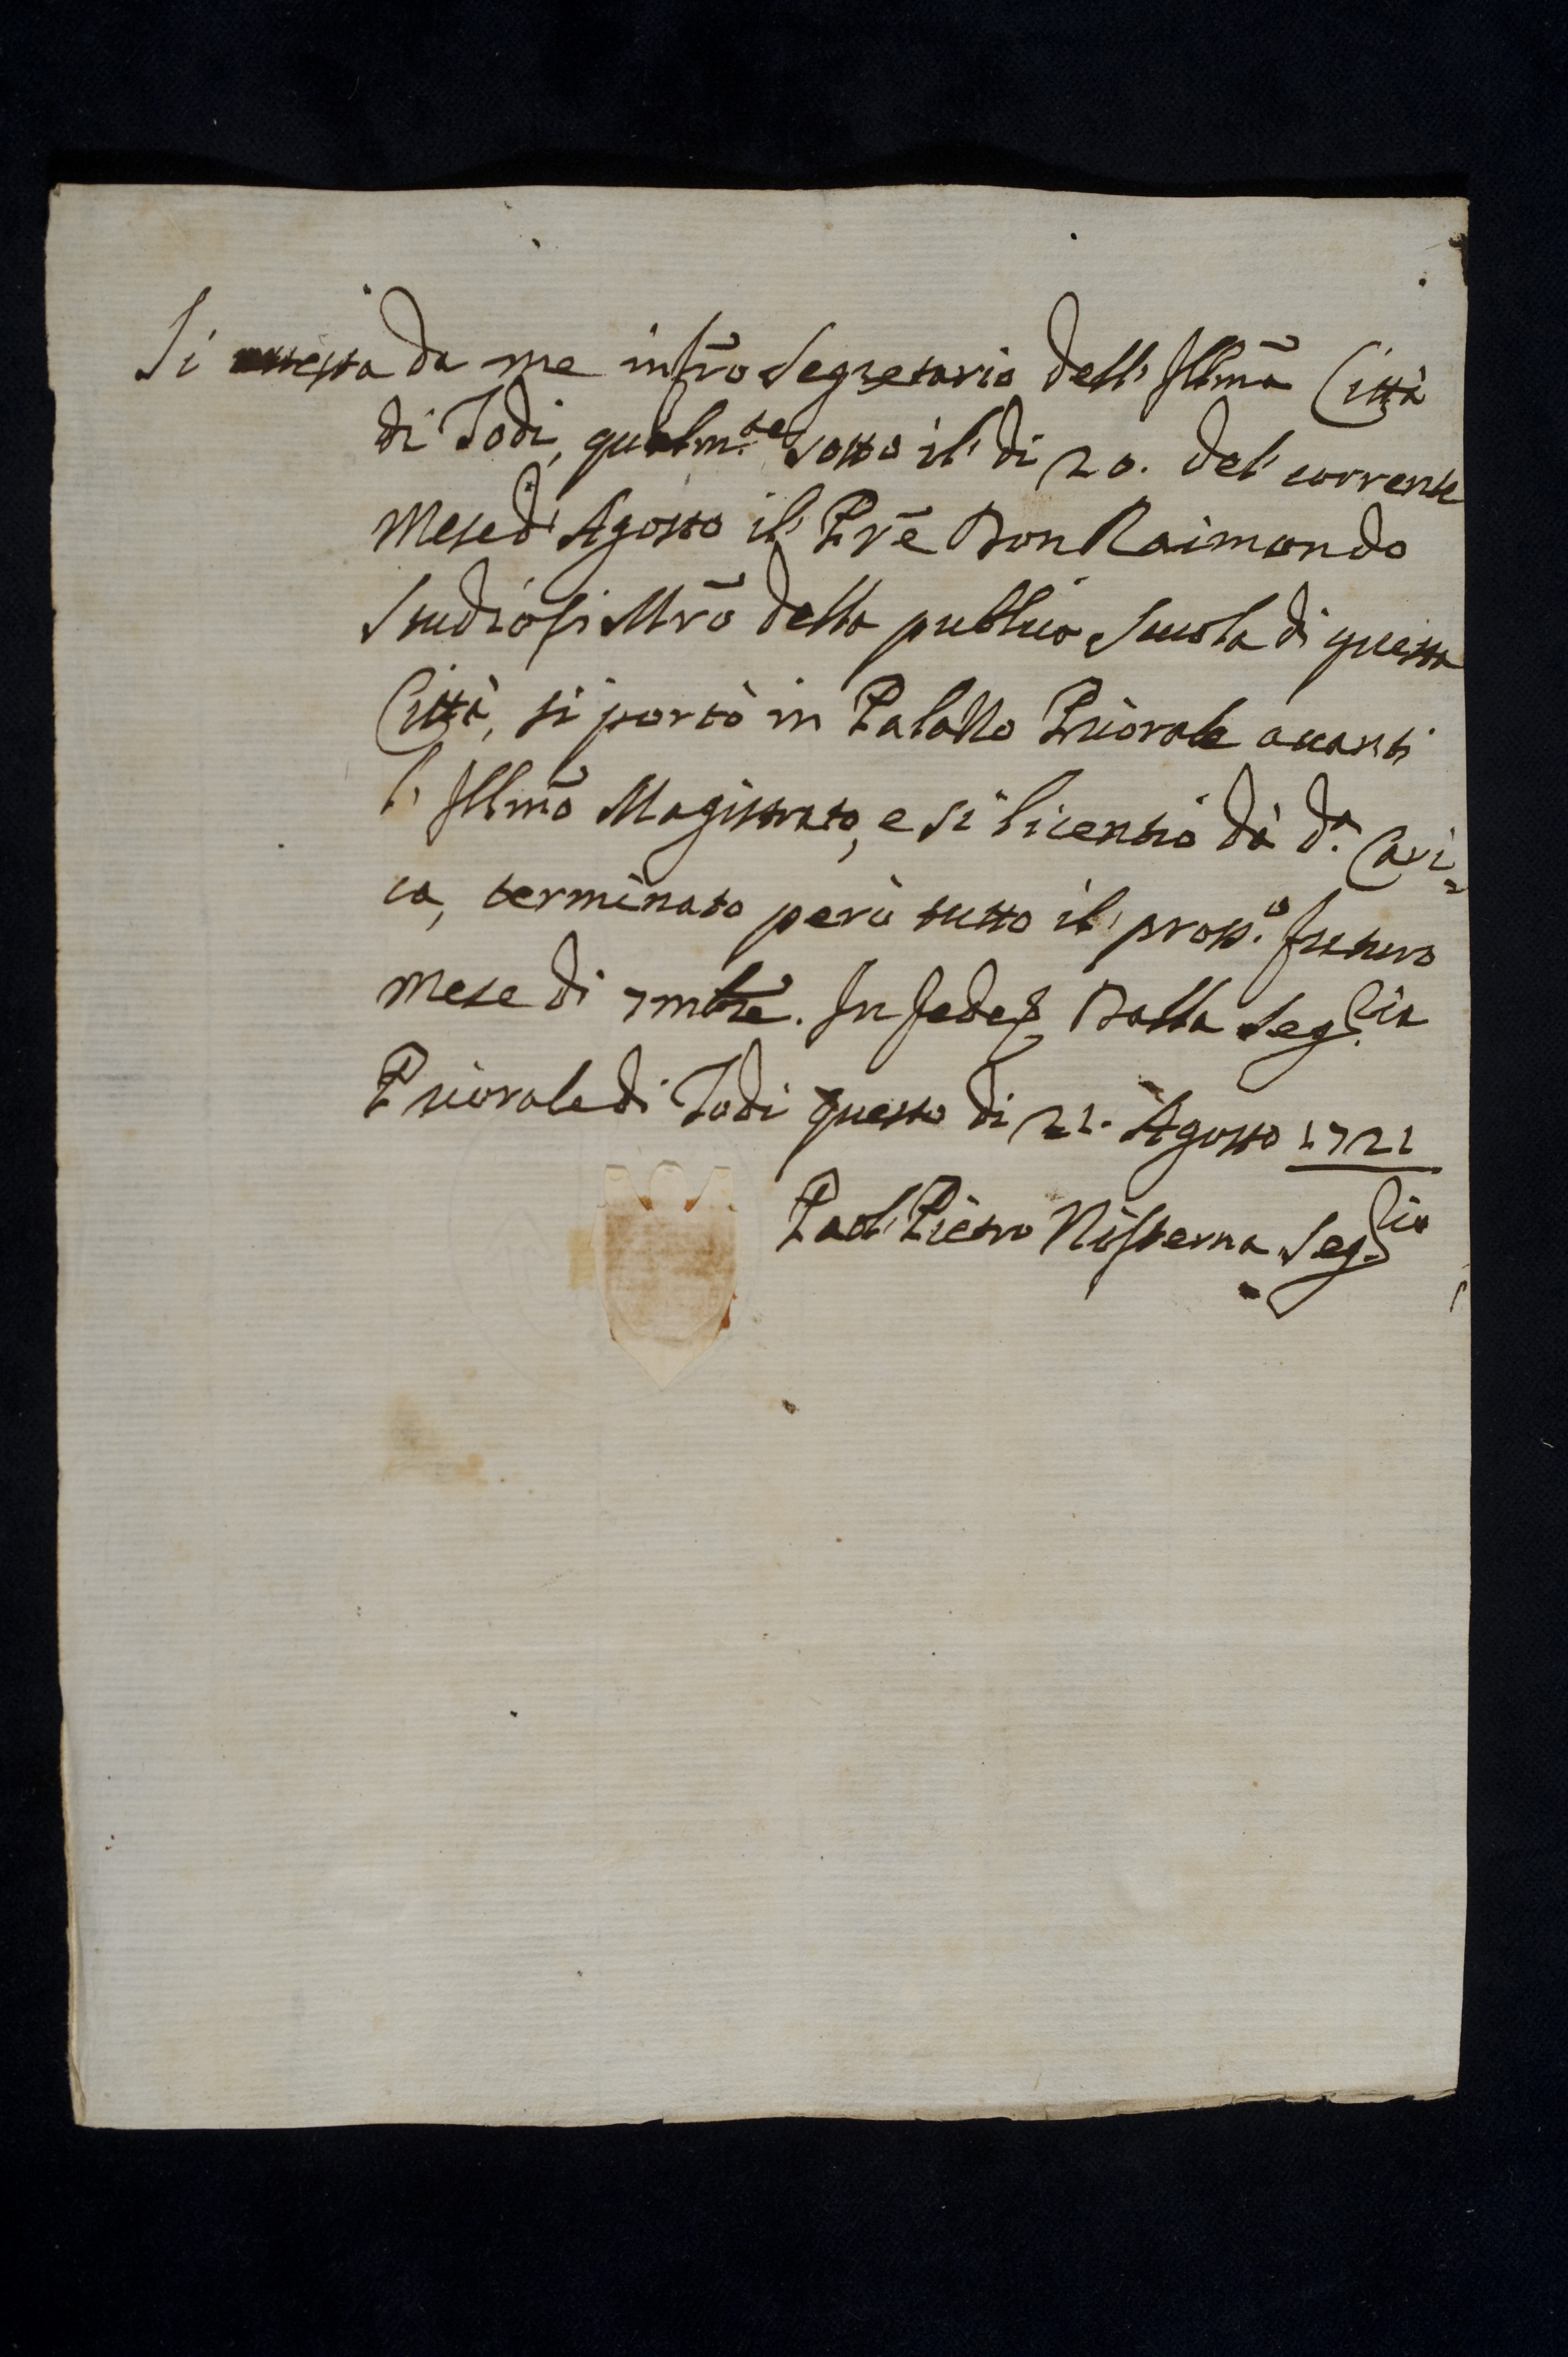 Si attesta da me infrõ Segretario dell' Illmã Città
di Todi, qualm.te sotto il dì 20. del corrente
Mese d'Agosto il Prẽ Don Raimondo
Studiosi Mrõ della publica Scuola di questa
Città, si portò in Palazzo Priorale auanti
l' Illmõ Magistrato, e si licentiò da d.a Cari=
ca, terminato però tutto il pross.o futuro
mese di 7mbre. In fede & Dalla Seg.ria
Priorale di Todi questo dì 21. Agosto 1721
Paol Pietro Seg.rio